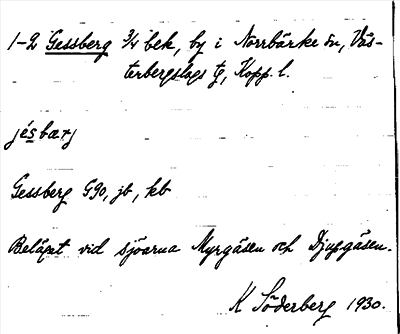 1-2 Gessberg 3/4 bek, by i Norrbärke sn, Väs-
terbergslags tg, Kopp. l.
jésbærj
Gessberg G90, jb, kb
Beläget vid sjöarna Myrgåsen och Djupgåsen.
K Söderberg 1930.